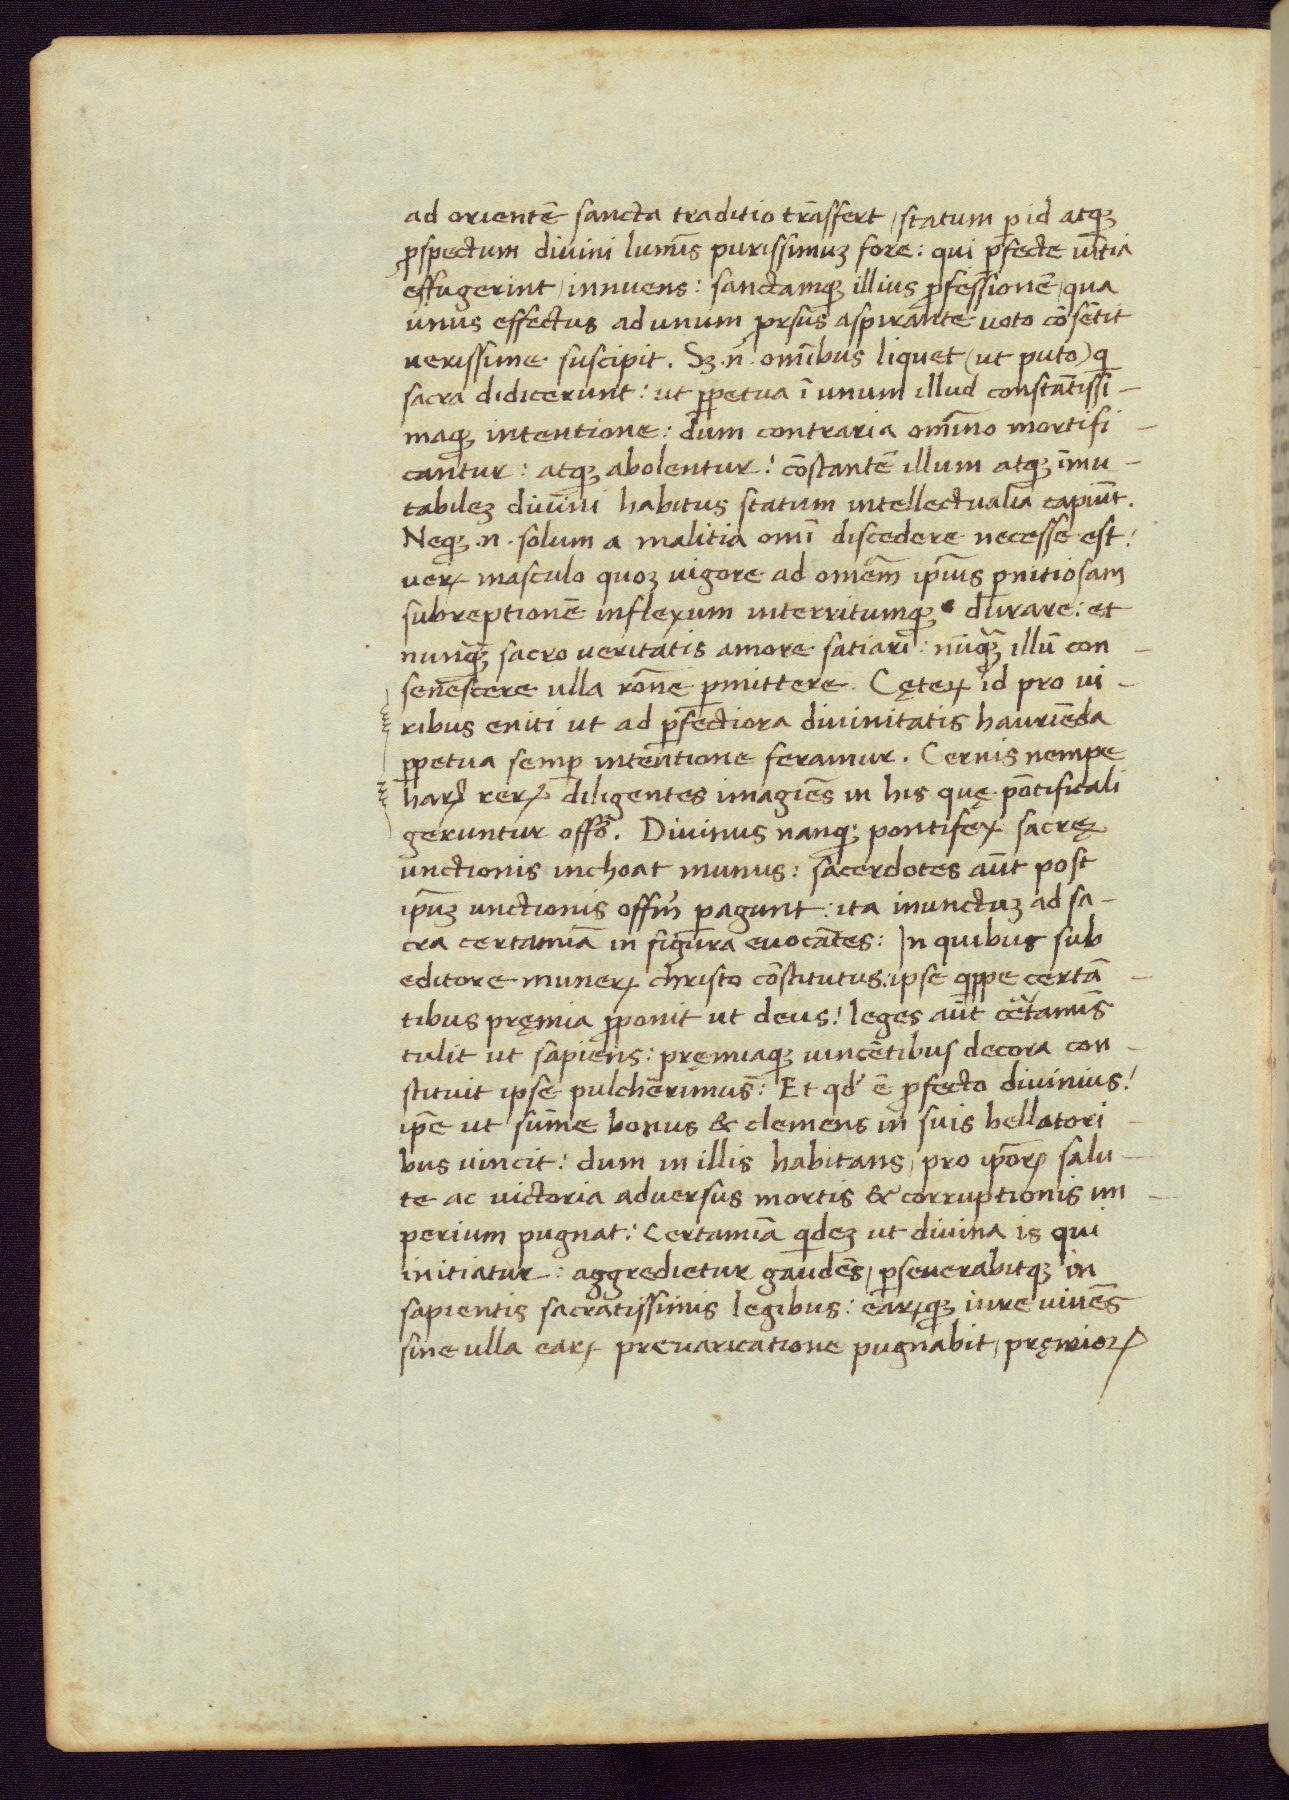 ad orientē sancta traditio trāsfert, statum ꝑ id atqꝫ
ꝓspectum diuini lumīs purissimuꝫ fore: qui ꝑfecte uitia
effugerint, innuens: sanctamqꝫ illius ꝓfessionē, qua
unus effectus ad unum ꝓrsus aspirante uoto cōsētit
uerissime suscipit. Sꝫ .n. omībus liquet (ut puto) q
sacra didicerunt: ut ꝑpetua ī unum illud constātissi-
maqꝫ intentione: dum contraria omīno mortifi-
cantur: atqꝫ abolentur! cōstantē illum atqꝫ īmu-
tabileꝫ diuini habitus statum intellectualia capiūt.
Neqꝫ .n. solum a malitia omī discedere necesse est!
ueꝝ masculo quoꝫ uigore ad omēm ip̄ius ꝑnitiosam
subreptionē inflexum interritumqꝫ durare: et
nunqꝫ sacro ueritatis amore satiari: nūqꝫ illū con-
senescere ulla rōne ꝑmittere. Cęteꝝ id pro ui-
ribus eniti ut ad ꝑfectiora diuinitatis hauriēda
ꝑpetua semꝑ intentione feramur. Cernis nempe
haꝝ reꝝ diligentes imagiēs in his quę pōtificali
geruntur offō. Diuinus nanqꝫ pontifex sacrę
unctionis inchoat munus: sacerdotes aūt post
ip̄uꝫ unctionis offm̄ ꝑagunt: ita inunctuꝫ ad sa-
cra certamiā in figura euocātes: In quibus sub
editore muneꝝ christo cōstitutus: ipse qippe certā-
tibus pręmia ꝓponit ut deus! leges aūt certamīs
tulit ut sapiens: pręmiaqꝫ uincētibus decora con-
stituit ipse pulcherimus: Et qd' ē ꝓfecto diuinius!
ip̄e ut sūme bonus & clemens in suis bellatori-
bus uincit! dum in illis habitans, pro ip̄oꝝ salu-
te ac uictoria aduersus mortis & corruptionis im-
perium pugnat: Certamiā qideꝫ ut diuina is qui
initiatur: aggredietur gaudēs, ꝑseuerabitqꝫ in
sapientis sacratissimis legibus: eaꝝqꝫ iure uiuēs
sine ulla eaꝝ preuaricatione pugnabit, pręmioꝝ